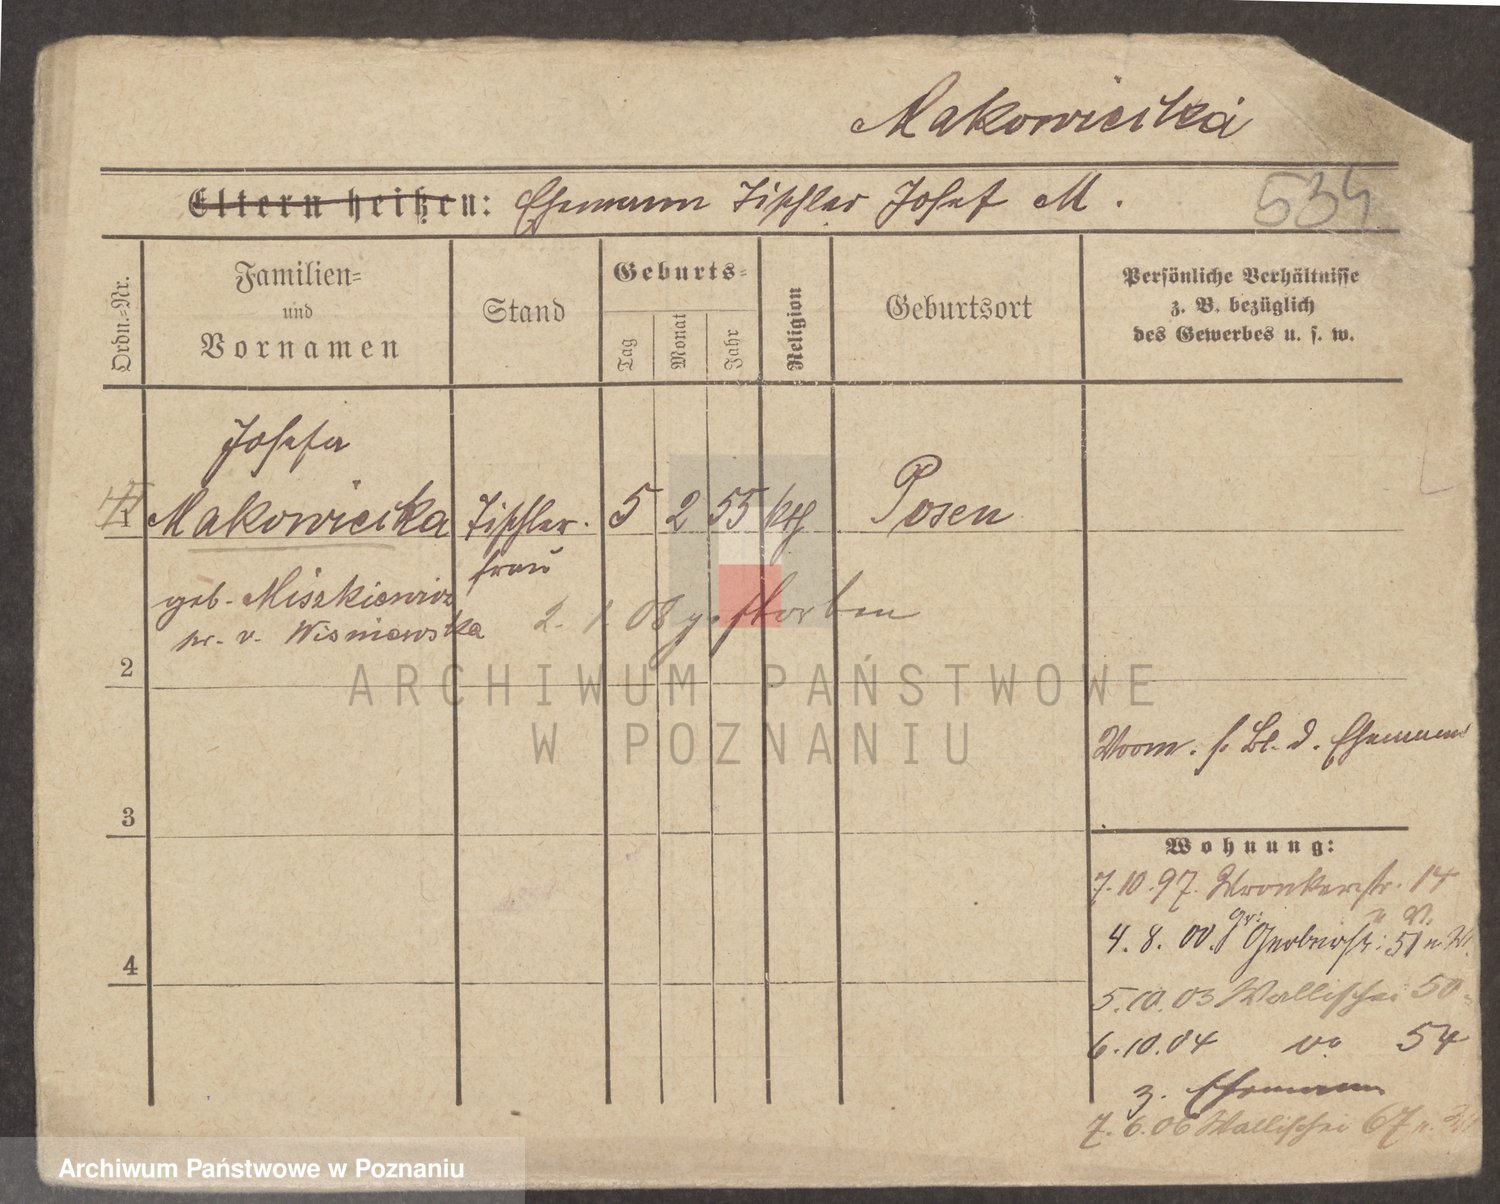 Makowiecka
Eltern heißen: Ehemann Tischler Josef M.
534
Ordn.=Nr.
Familien=
und
Vornamen
Stand
Geburts=
Tag
Monat
Jahr
Religion
Geburtsort
Persönliche Verhältnisse
z. B. bezüglich
des Gewerbes u. s. w.
Josefa
1 Makowiecka Tischler- 5 2 55 kth Posen
frau
geb. Miszkiewicz
pr. v. Wisniewska
2. 1. 08 gestorben
2
ARCHIWUM PAŃSTWOWE
W POZNANIU
Vorm. s. Bl. d. Ehemanns
3
Wohnung:
7.10.97. Wronkerstr. 14
4. 8. 00. gr. Gerberstr. 51
4
5.10.03 Wallischei 50
6.10.04 do 54
z. Ehemann
7.6.06 Wallischei 67
Archiwum Państwowe w Poznaniu